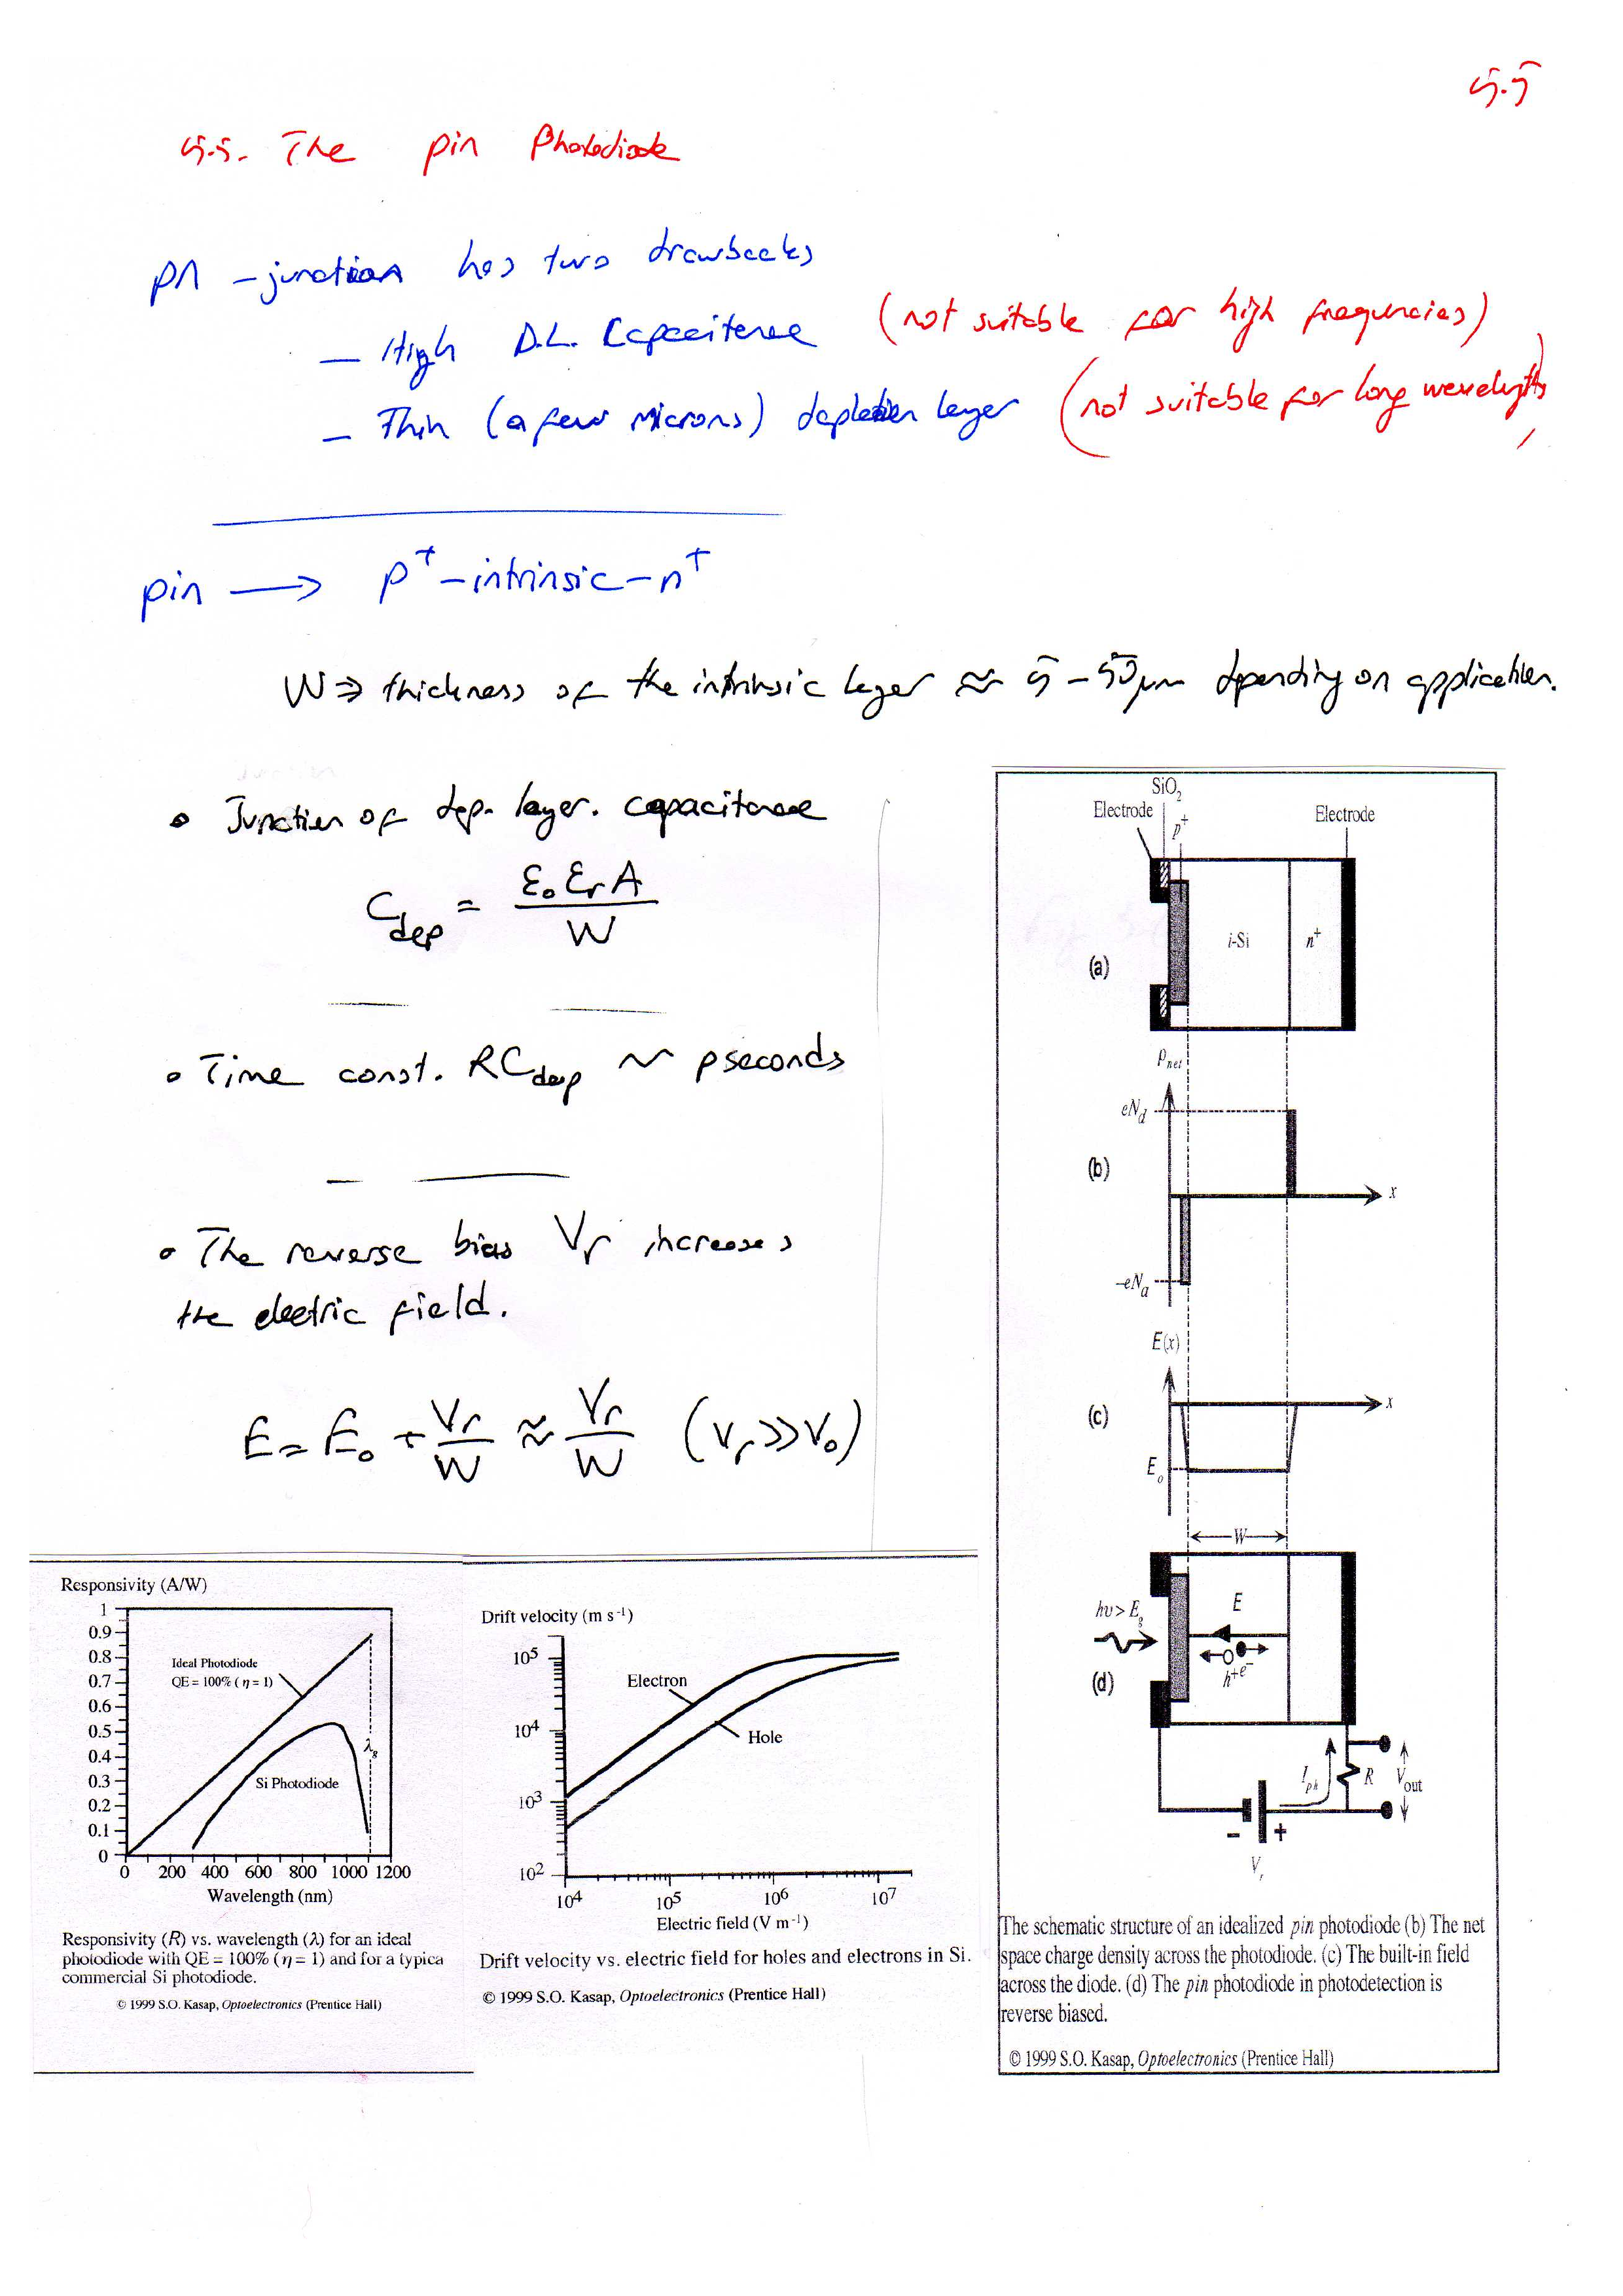 5.5
5.5. The pin Photodiode
pn -junction has two drawbacks
- High D.L. Capacitance (not suitable for high frequencies)
- Thin (a few microns) depletion layer (not suitable for long wavelengths)
pin → p⁺-intrinsic-n⁺
W ⇒ thickness of the intrinsic layer ≈ 5-50μm depending on application.
• Junction of dep. layer. capacitance
C_dep = ε₀ εr A / W
• Time const. RC_dep ~ pseconds
• The reverse bias Vr increases
the electric field.
E = E₀ + Vr/W ≈ Vr/W (Vr >> V₀)
SiO₂
Electrode p⁺ Electrode
i-Si n⁺
(a)
ρnet
eNd
(b)
x
-eNa
E(x)
(c) x
Eo
W
hυ > Eg E
h⁺ e⁻
(d)
Iph R Vout
- +
Vr
The schematic structure of an idealized pin photodiode (b) The net
space charge density across the photodiode. (c) The built-in field
across the diode. (d) The pin photodiode in photodetection is
reverse biased.
© 1999 S.O. Kasap, Optoelectronics (Prentice Hall)
Responsivity (A/W)
1
0.9
0.8
0.7
0.6
0.5
0.4
0.3
0.2
0.1
0
Ideal Photodiode
QE = 100% ( η = 1)
λg
Si Photodiode
0 200 400 600 800 1000 1200
Wavelength (nm)
Responsivity (R) vs. wavelength (λ) for an ideal
photodiode with QE = 100% (η = 1) and for a typica
commercial Si photodiode.
© 1999 S.O. Kasap, Optoelectronics (Prentice Hall)
Drift velocity (m s⁻¹)
10⁵
10⁴
10³
10²
Electron
Hole
10⁴ 10⁵ 10⁶ 10⁷
Electric field (V m⁻¹)
Drift velocity vs. electric field for holes and electrons in Si.
© 1999 S.O. Kasap, Optoelectronics (Prentice Hall)